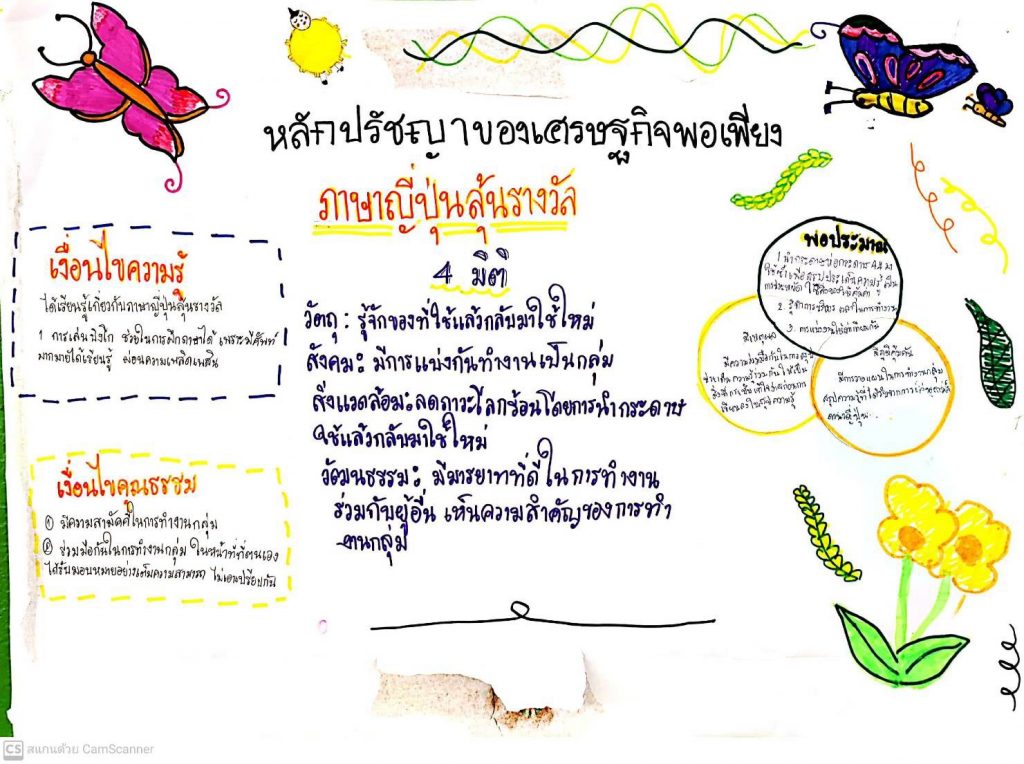 หลักปรัชญาของเศรษฐกิจพอเพียง
ภาษาญี่ปุ่นลุ้นรางวัล
4 มิติ
วัตถุ : รู้จักของที่ใช้แล้วกลับมาใช้ใหม่
สังคม : มีการแบ่งกันทำงานเป็นกลุ่ม
สิ่งแวดล้อม : ลดภาวะโลกร้อนโดยการนำกระดาษ
ใช้แล้วกลับมาใช้ใหม่
วัฒนธรรม : มีมารยาทที่ดีในการทำงาน
ร่วมกับผู้อื่น เห็นความสำคัญของการทำ
งานกลุ่ม
เงื่อนไขความรู้
ได้เรียนรู้เกี่ยวกับภาษาญี่ปุ่นลุ้นรางวัล
1 การเล่นบิงโก ช่วยในการฝึกภาษาได้ เพราะมีศัพท์
มากมายได้เรียนรู้ ผ่อนความเพลิดเพลิน
เงื่อนไขคุณธรรม
① มีความสามัคคีในการทำงานกลุ่ม
② ร่วมมือกันในการทำงานกลุ่ม ในหน้าที่ที่ตนเอง
ได้รับมอบหมายอย่างเต็มความสามารถ ไม่เอาเปรียบกัน
พอประมาณ
2. รู้จักการ
3. การแบ่ง
มีเหตุผล
มีภูมิคุ้มกัน
มีการวางแผนในการทำงานกลุ่ม
ภาษาญี่ปุ่น
CS สแกนด้วย CamScanner